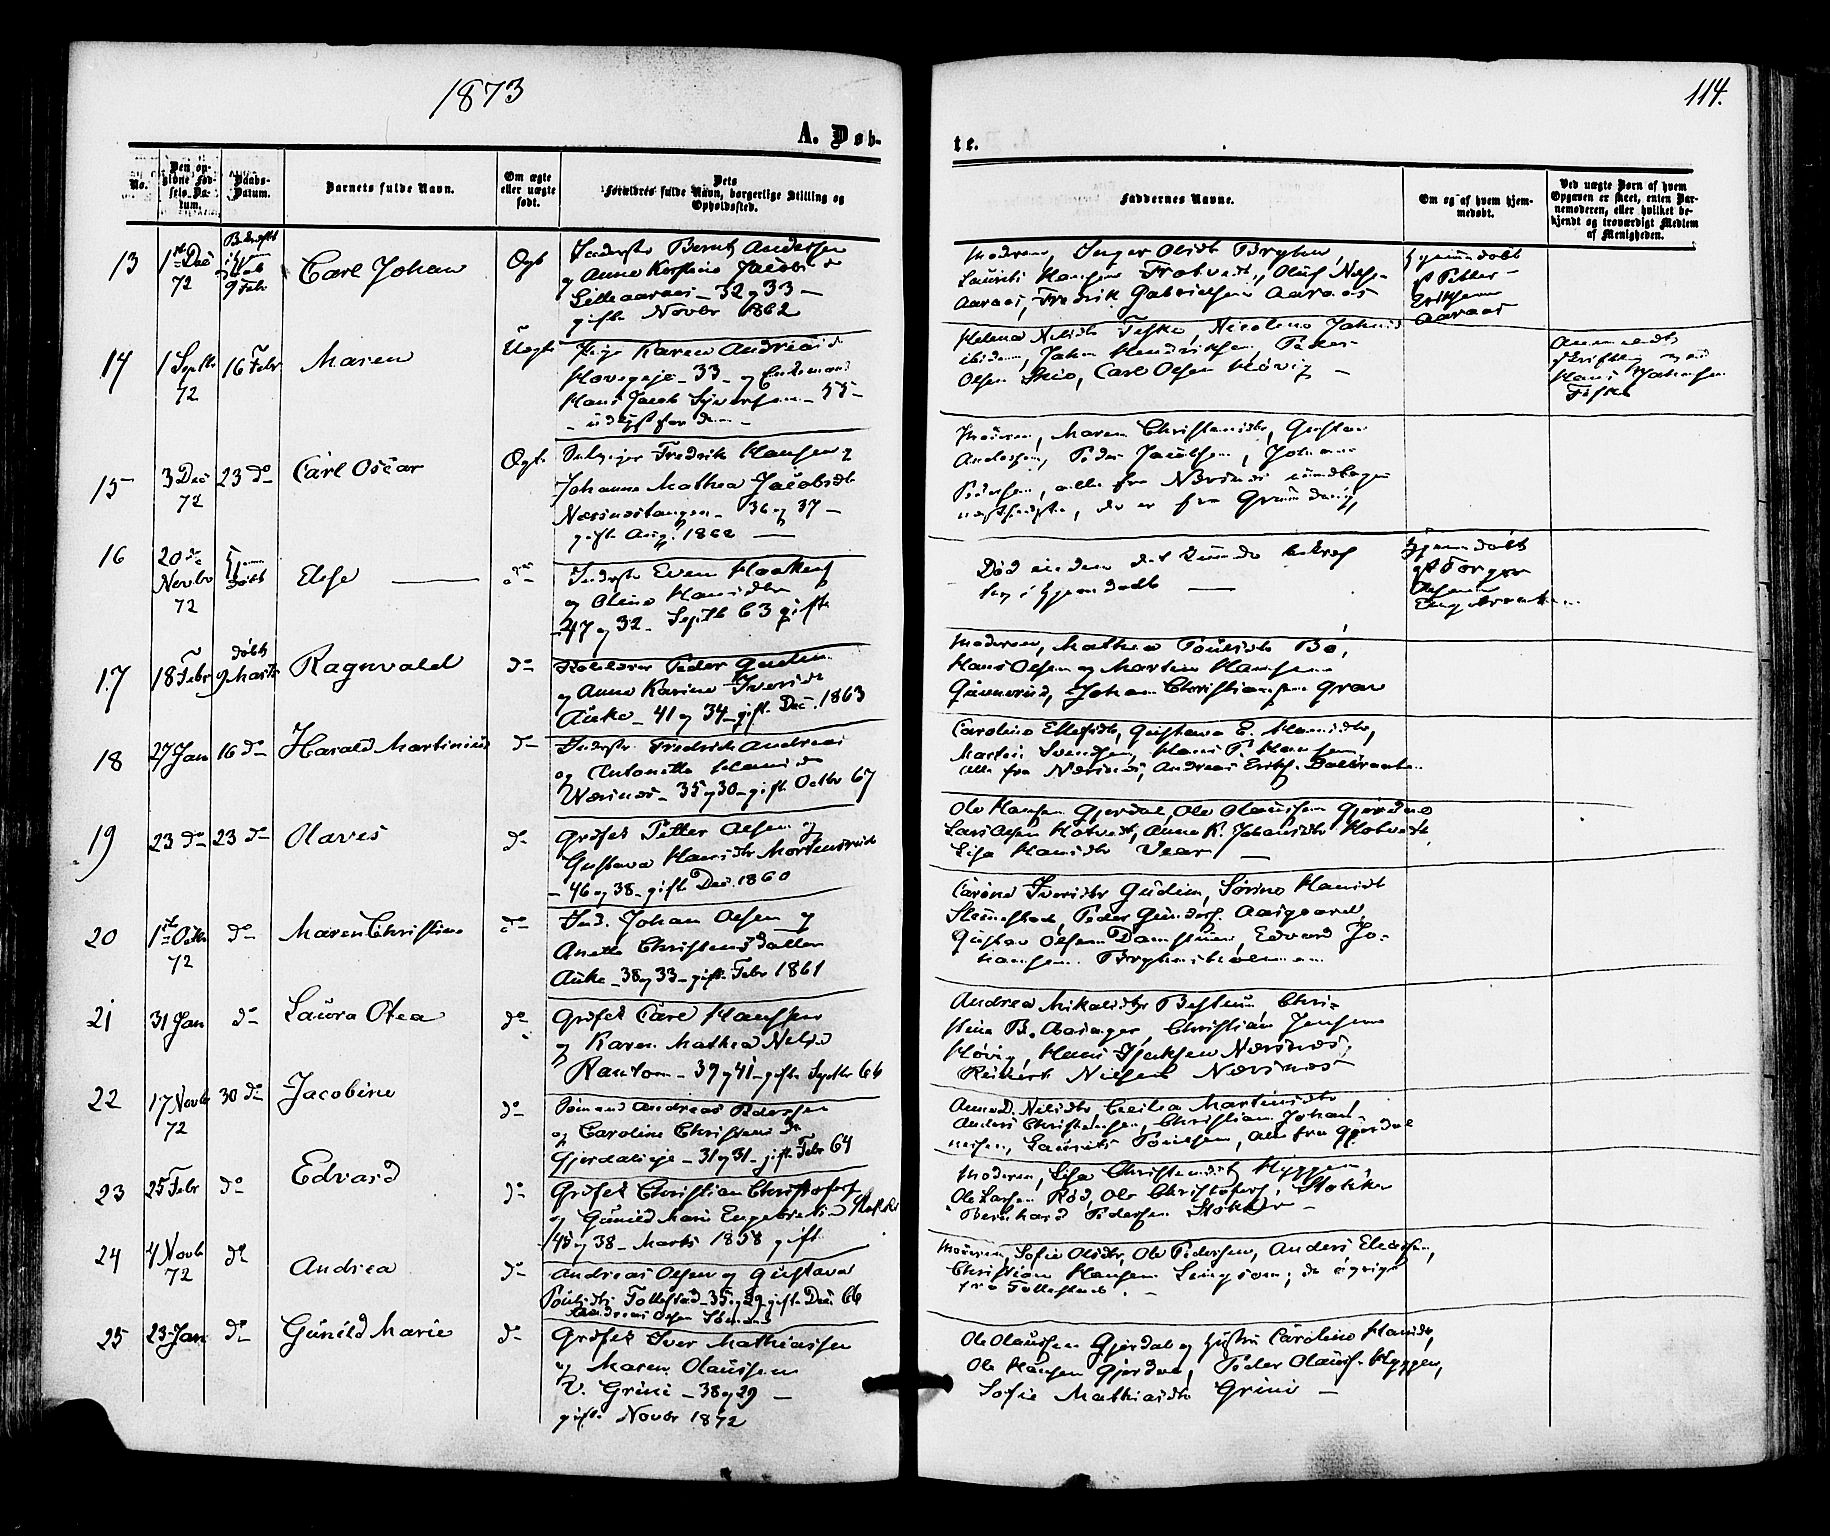 1873
114.
A. Døb-
te.
No.
Den op-
givne Fød-
sels Da-
tum.
Daabs-
Datum.
Barnets fulde Navn.
Om ægte
eller uægte
født.
Dets
Forældres fulde Navn, borgerlige Stilling og
Opholdssted.
Faddernes Navne.
Om og af hvem hjem-
medøbt.
Ved uægte Børn af hvem
Opgaven er skeet, enten Bar-
nemoderen, eller hvilket be-
kjendt og troværdigt Medlem
af Menigheden.
13
1ste Dec
72
9 Febr
Carl Johan
Ægt
Inderste Bernt Andersen
og Anne Kirstine Jacobsd
Lilleaaraas - 32 og 33 -
gifte Novbr 1862
Moderen, Inger Olsdt Bryhn,
Laurits Hansen Frotvedt, Oluf Niels.
Aaraas, Fredrik Gabrielsen Aaraas
Hjemmedøbt
af Petter
Eriksen
Aaraas
14
1 Septbr
72
16 Febr
Maren
Uægt
Pige Karen Andreasd
Hovseje - 33 - og Enkemand
Hans Jacob Syversen - 55 -
Helena Nilsdt Fiske, Nicoline Johnsd
ibidem, Johan Hendriksen, Peder
Olsen Skio, Carl Olsen Høvig -
Anmeldt
skriftlig ved
Hans Johnsen
Fiske
15
3 Dec
72
23 do
Carl Oscar
Ægt
Selvejer Fredrik Hansen og
Johanne Mathea Jacobsdt
Næsnæstangen - 36 og 37 -
gifte Aug. 1862
Moderen, Maren Christensdtr, Gustav
Andersen, Peder Jacobsen, Johan
Pedersen, alle fra Næsnæs undtagen
næstsidste, der er fra Grundvig,
16
20de
Novbr
72
Hjem
døbt
Else
Inderste Even Haaken
og Oline Hansdtr
47 og 32 - Septb 63 gifte
Død inden det kunde bekræf
tes, Hjemdøbt
Hjemdøbt
af Torger
Olsen
17
18 Febr
døbt
9 Marts
Ragnvald
do
Peder Gudm.
og Anne Karine Iversdt
Auke - 41 og 34 - gift Dec. 1863
Moderen, Mathea Poulsdt Bø,
Hans Olsen og Martin Hansen
Gunnerud, Johan Christiansen Grav
18
27 Jan
16 do
Harald Martinius
do
Inderste Fredrik Andreas
og Antonette Hansd
Næsnæs - 35 og 30 - gift Octbr 67
Caroline Ellefsdt, Gustava E. Hansdtr,
Martin Svendsen, Hans P. Hansen
alle fra Næsnæs, Andreas Eriks. Dalbraaten
19
23 do
23 do
Olaves
do
Grdfst Petter Olsen og
Gustava Hansdtr Mortensrud
- 46 og 38 - gift Dec. 1860
Ole Hansen Gjerdal, Ole Olaussen Gjerdal
Lars Olsen Hotvedt, Anne K. Johansdtr Hotvedt
Lisa Hansdtr Vear
20
1ste Octbr
72
do
Maren Christine
do
Ind. Johan Olsen og
Anette Christensdatter
Auke - 38 og 33 - gift Febr 1861
Carine Iversdtr Gudim, Sørine Hansdt
Slemmestad, Peder Gunders. Aasgaard,
Gustav Olsen Damstuen, Edvard Jo-
hansen Bryhnsholmen
21
31 Jan
do
Laura Otea
do
Grdfst Carl Hanssen
og Karen Mathea Nelsd
Ramtom - 39 og 41 - gifte Septbr 66
Andrea Mikalsdtr Bestum, Chri-
stine B. Aasanger, Christian Jensen
Høvig, Hans Isaksen Næsnæs,
Reinert Nilsen Næsnæs
22
17 Novb
72
30 do
Jacobine
do
Sømand Andreas Pedersen
og Caroline Christensd
Gjerdaleje - 31 og 31 - gift Febr 64
Anne D. Nelsdtr, Cecilia Martinsdtr,
Anders Christensen, Christian Johan-
nesen, Laurits Poulsen, alle fra Gjerdal
23
25 Febr
do
Edvard
do
Grdfst Christian Christofers
og Gunild Marie Engebretsd Stokker
45 og 38 - Marts 1858 gift
Moderen, Lisa Christensdt Hyggen,
Ole Larsen Rød, Ole Christofers. Stokker
Bernhard Pedersen Stokker -
24
4 Novb
72
do
Andrea
do
Andreas Olsen og Gustava
Poulsdtr Follestad - 35 og 29 - gifte Dec 66
Andreas Olsen Sømand
Moderen, Sofie Olsdtr, Ole Pedersen, Anders Eliassen,
Christian Hansen Lingsom; de øvrige
fra Follestad.
25
23 Jan
do
Gunild Marie
do
Grdfst Iver Mathiassen
og Maren Olaussen
V. Grini - 38 og 29 -
gifte Novbr 1872
Ole Olaussen Gjerdal og Hustru Caroline Hansdt,
Ole Hansen Gjerdal, Peder Olauss. Hyggen,
Sofie Mathiasdtr Grini -